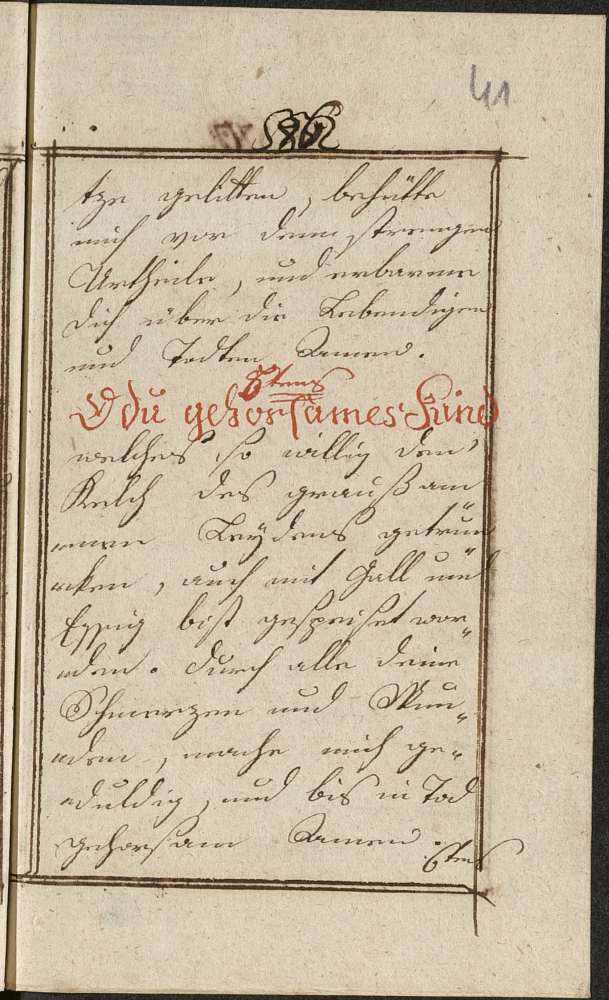 41
tze gelitten, behütte
mich vor dem strengen
Urtheile, und erbarme
dich über die Lebendigen
und Todten Aamen.
5tens
O du gehorsames Kind
welches so willig den
Kelch des grauß am
Leydens getrun
cken, auch mit Gall und
Eßig bist gespeiset wor
den. Durch alle deine
Schmerzen und Wun
den, mache mich ge„
duldig, und bis in Tod
gehorsam Aamen.
6tens